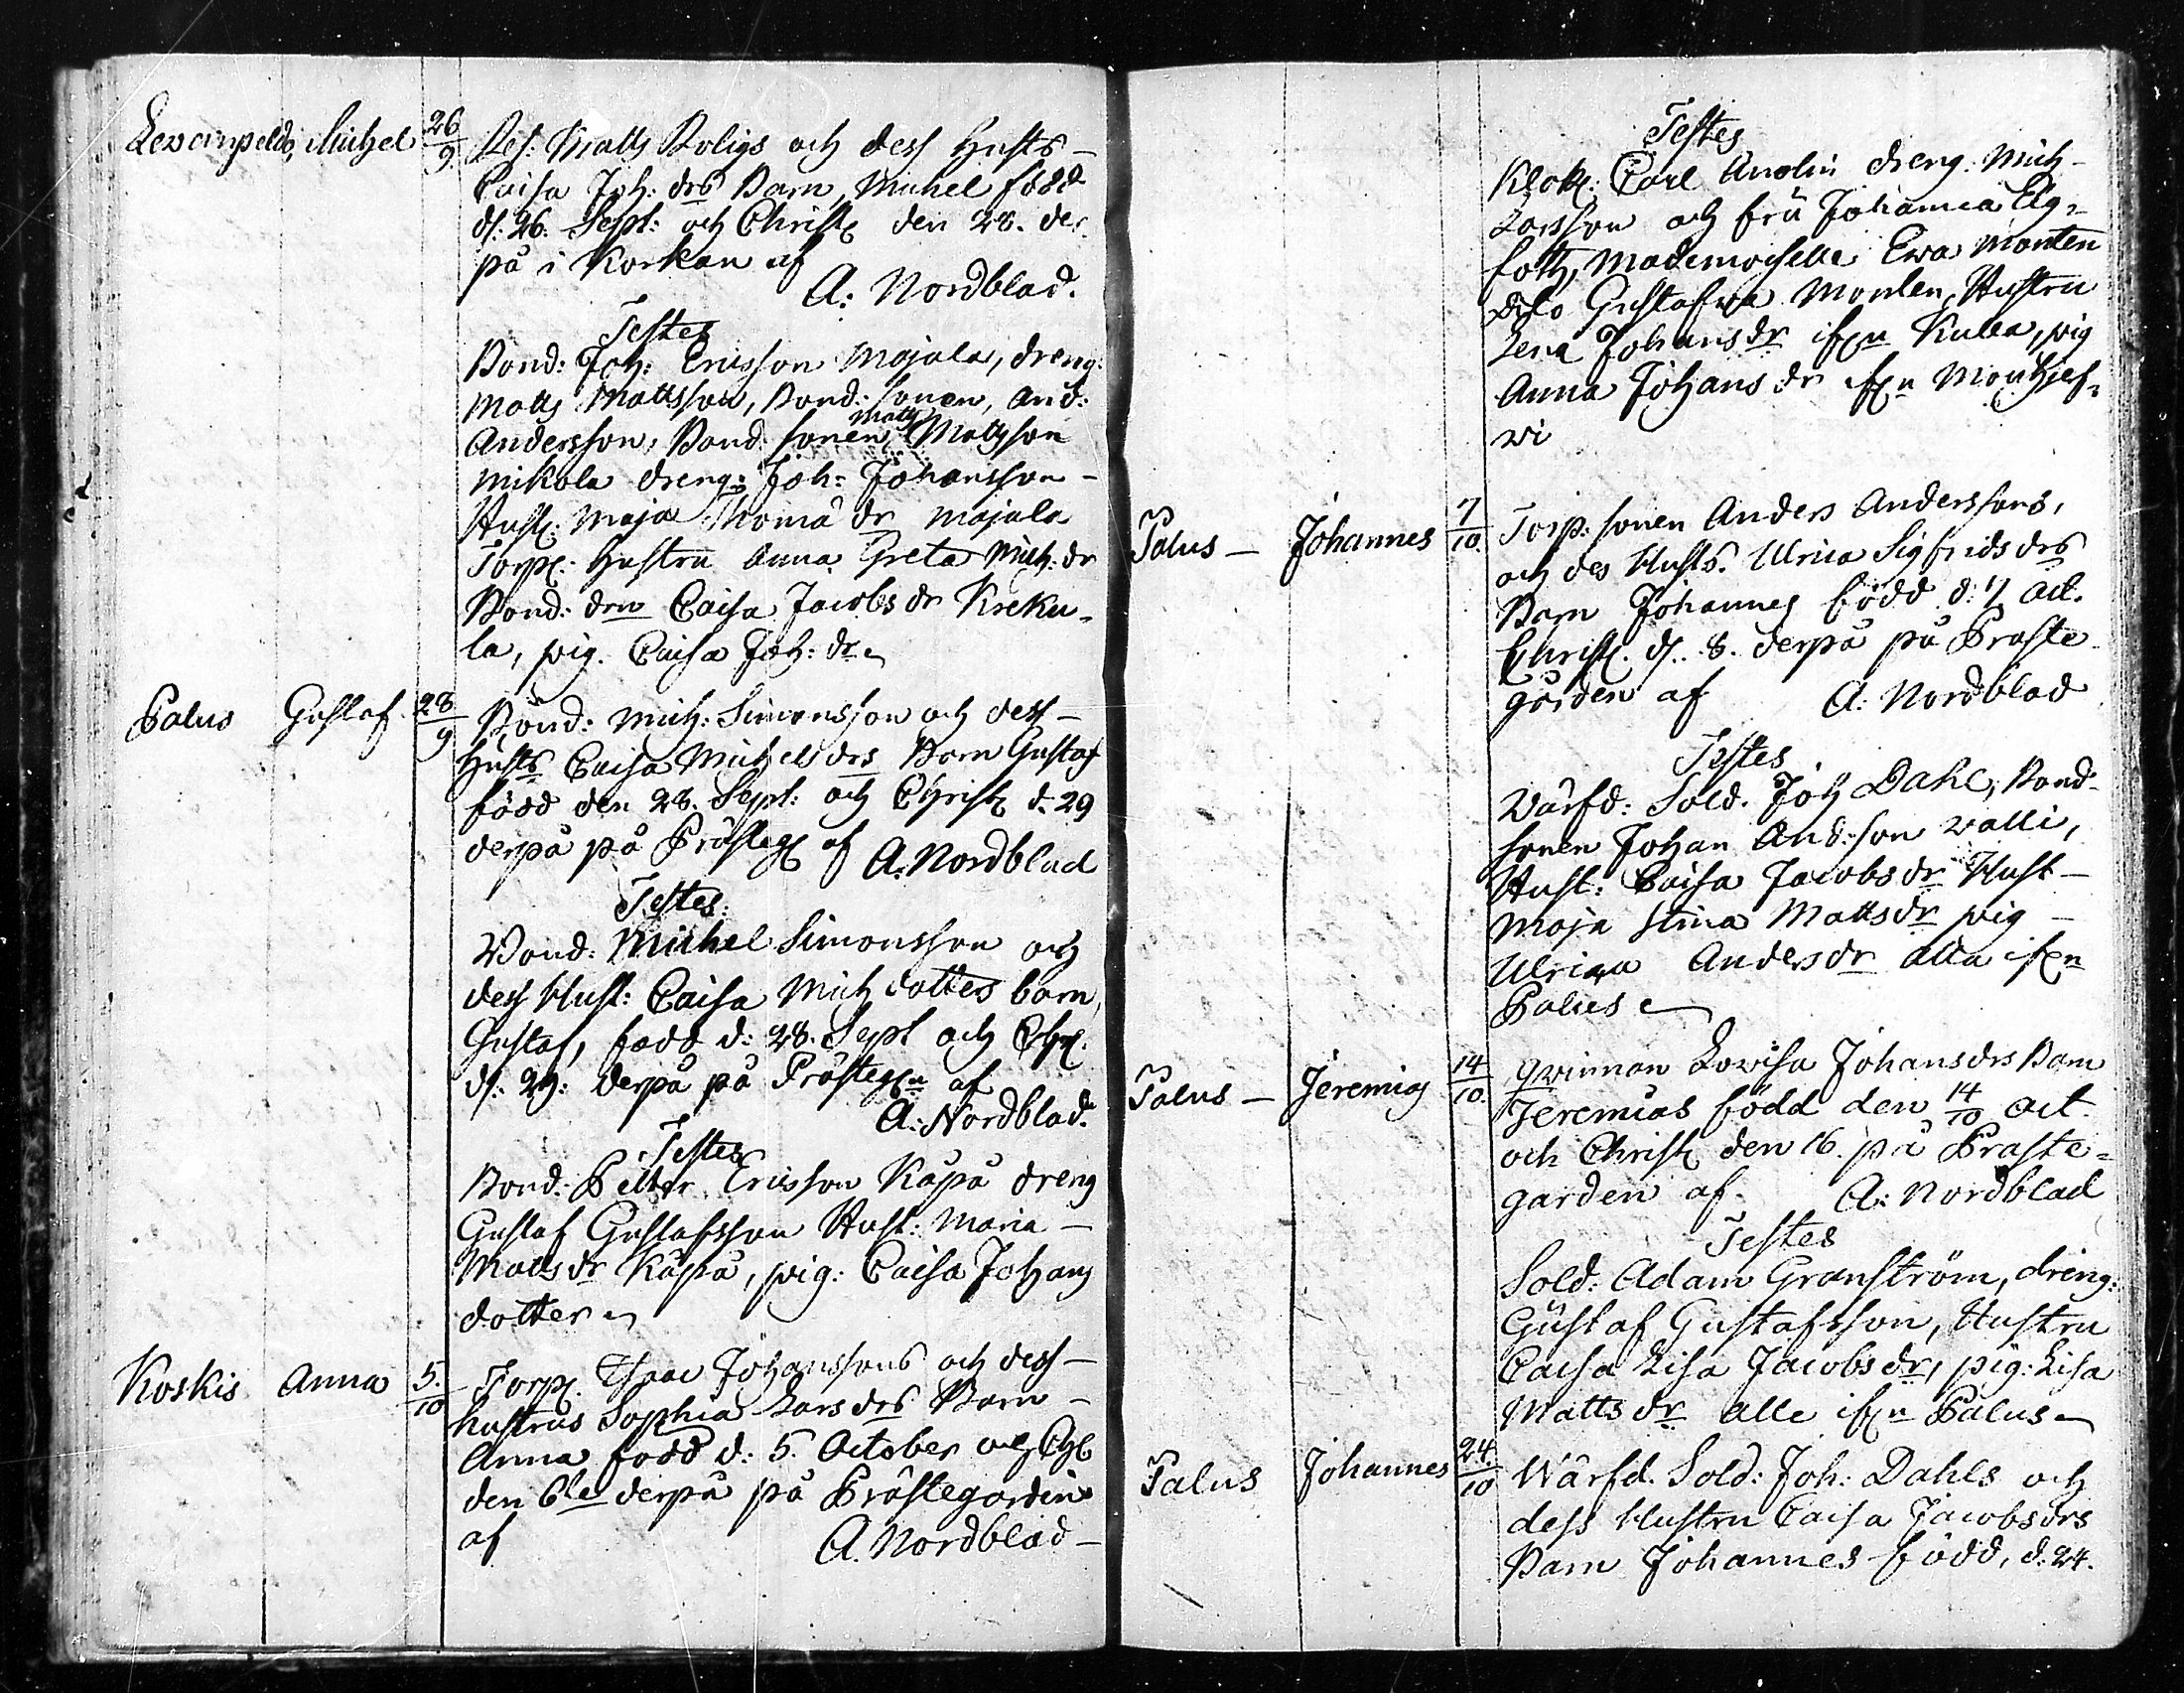 Levanpeldo, Michel 26/9 Res: Matts Roligs och dess Husts
Caisa Joh: drs Barn, Michel född
d: 26. Sept: och Christ den 28. der
på i Korkan af
A: Nordblad.
Testes
Bond: Joh: Ericsson Majala, dreng:
Matts Mattsson, Bond: sonen, And:
Andersson, Bond: sonen Matts Mattsson
Mikola dreng: Joh: Johansson
Hust: Maja Thoma dr Majala
Torp: Hustru Anna Greta Mich: dr
Bond: drn Caisa Jacobs dr Kreku-
la, pig. Caisa Joh: dr
Palus Gustaf 28/9 Bond: Mich: Simonsson och dess
Husts Caisa Michels drs Barn Gustaf
född den 28. Sept: och Christ d: 29
derpå på Prästeg af A: Nordblad
Testes:
Bond: Michel Simonsson och
dess Hust: Caisa Mich dotters barn,
Gustaf, född d: 28. Sept och Chr.
d: 29: derpå på Prästegn af
A: Nordblad.
Testes
Bond: Petter Ericsson Käpä dreng
Gustaf Gustafsson Hust: Maria
Matts dr Käpä, pig: Caisa Johans
dotter
Koskis Anna 5/10 Torp. Isaac Johanssons och dess
hustrus Sophia Lars drs Barn
Anna född d: 5. October och Chr
den 6te derpå på Prästegården
af A. Nordblad
Testes
Klok: Carl Anolin dreng: Mich
Larsson och fru Johanna Elg-
foth, Mademoiselle Ewa Monten
dito Gustafwa Monten, Hustru
Lena Johans dr ifrn Kulla, pig
Anna Johans dr ifrn Mouhijer-
wi
Palus Johannes 7/10 Torp: sonen Anders Anderssons,
och des Husts. Ulrica Sigfrids drs
Barn Johannes född d: 7 Oct.
Christ. d. 8. derpå på Präste-
gården af A: Nordblad
Testes
Värfd: Sold. Joh Dahl, Bond-
sonen Johan And:son Valli,
Hust: Caisa Jacobs dr Hust
Maja Stina Matts dr pig
Ulrica Anders dr alla ifrn
Palus
Palus Jeremias 14/10 Qvinnan Lovisa Johans drs Barn
Jeremias född den 14/10 Oct
och Christ den 16. på Präste-
garden af A: Nordblad
Testes
Sold: Adam Granström, dreng:
Gustaf Gustafsson, Hustru
Caisa Lisa Jacobs dr, pig: Lisa
Matts dr alle ifrn Palus
Palus Johannes 24/10 Wärfd. Sold: Joh: Dahls och
dess Hustru Caisa Jacobs drs
Barn Johannes född, d: 24.